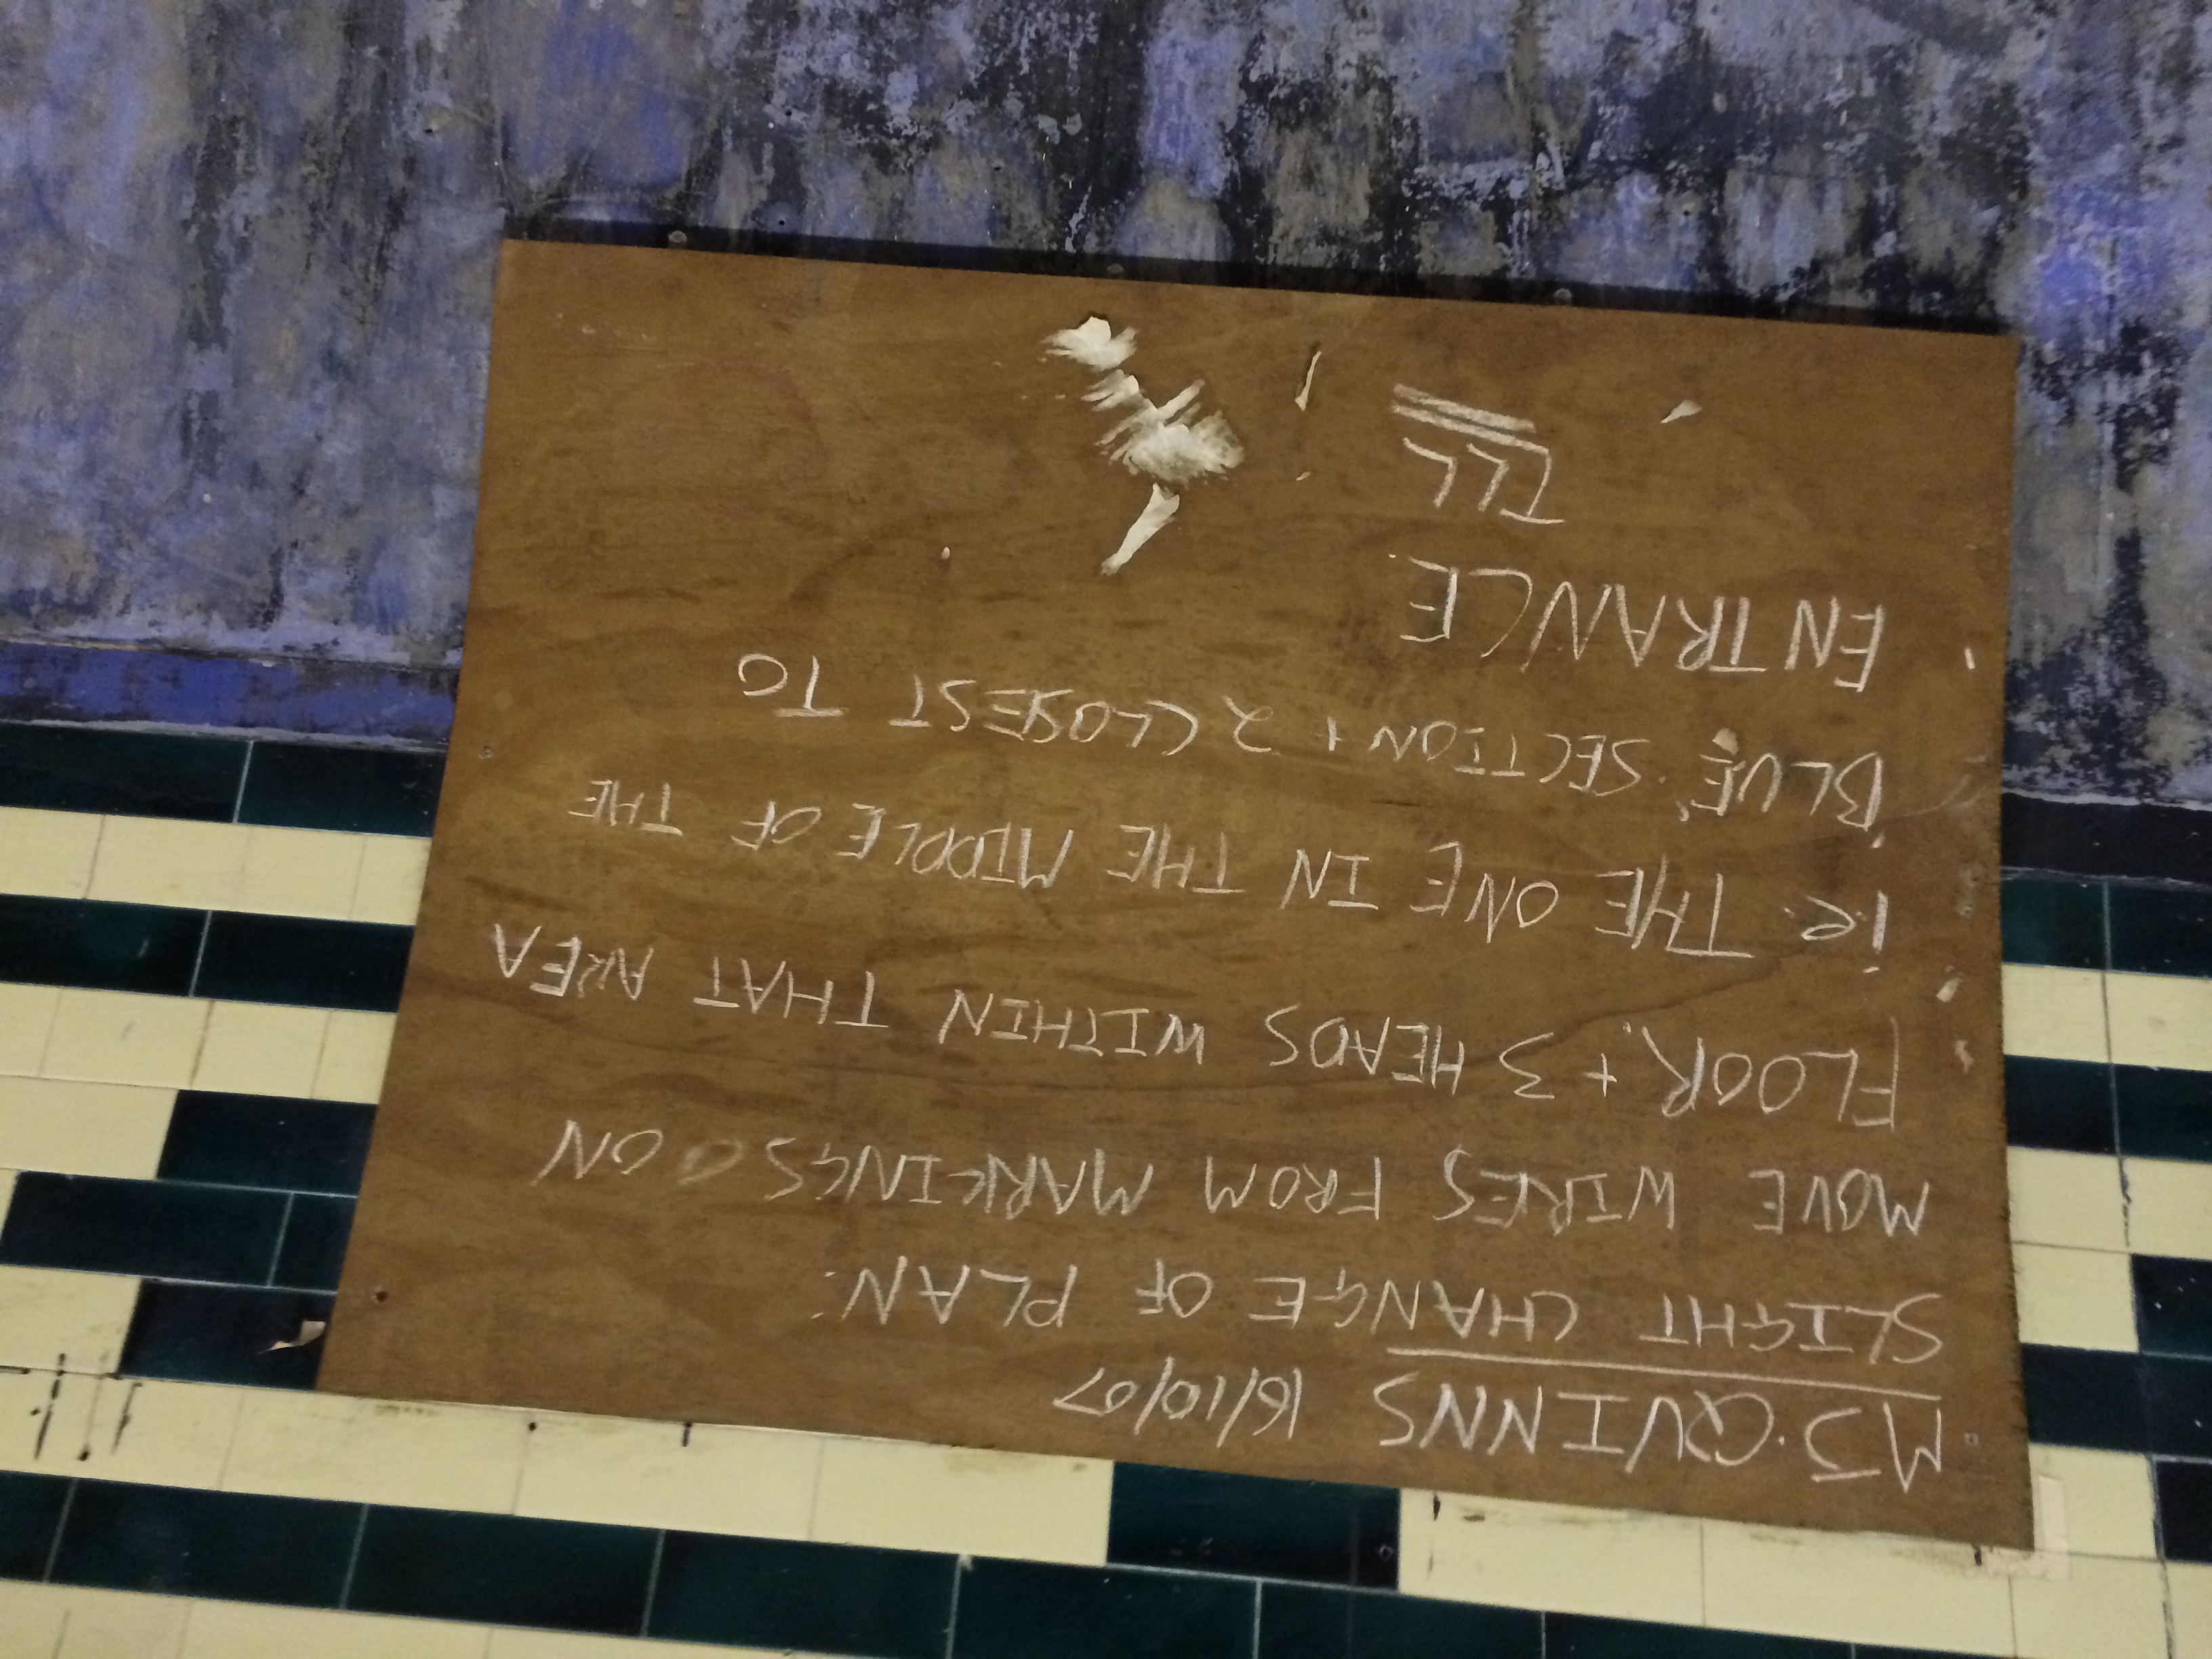 MJ.QUINNS 16/10/07
SLIGHT CHANGE OF PLAN:
MOVE WIRES FROM MARKINGS ON
FLOOR + 3 HEADS WITHIN THAT AREA
i.e. THE ONE IN THE MIDDLE OF THE
BLUE SECTION + 2 CLOSEST TO
ENTRANCE